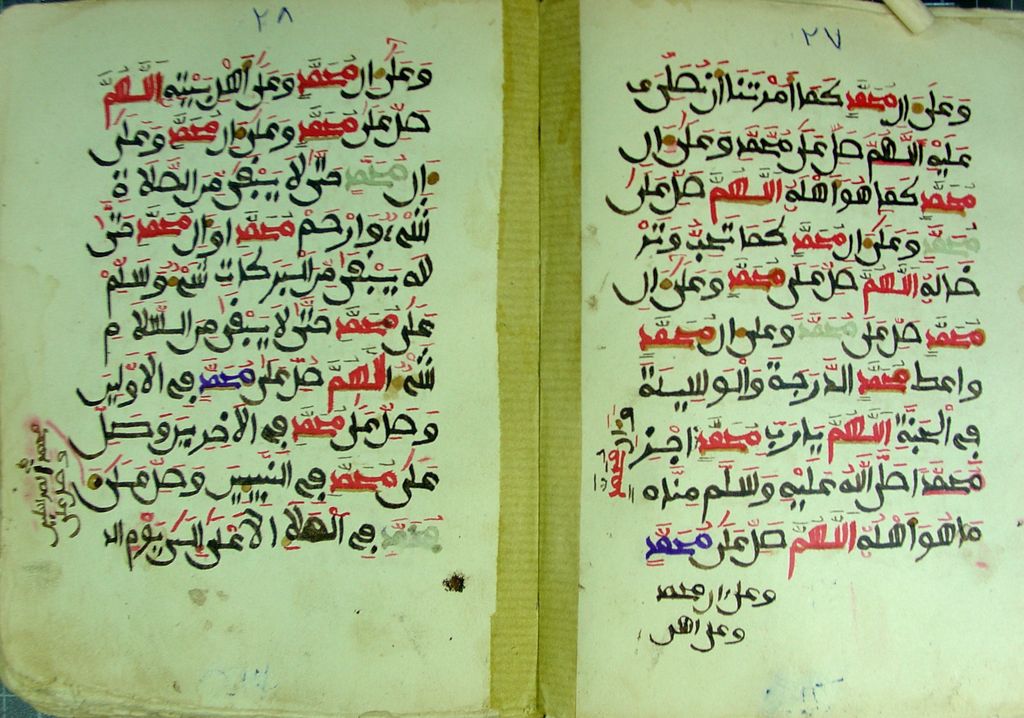 ٢٧
وعلى ال محمد كما أمرتنا أن نصلي
عليه اللهم صل على محمد وعلى ال
محمد كما هو اهله اللهم صل على
محمد وعلى ال محمد كما تحب وتر
ضاه له اللهم صل على محمد وعلى ال
محمد صل على محمد وعلى ال محمد
واعط محمد الدرجة والوسيلة
في الجنة اللهم يا رب محمد اجز
وال محمد
محمدا صلى الله عليه وسلم منا ه
ما هو اهله اللهم صل على محمد
وعلى ال محمد
وعلى اهل
٢٨
وعلى ال محمد وعلى أهل بيته اللهم
صل على محمد وعلى ال محمد وعلى
ال محمد حتى لا يبقى من الصلاة
شيء وارحم محمد او ال محمد حتى
لا يبقى من البركات شيء وسلم
على محمد حتى لا يبقى من السلام
شيء اللهم صل على محمد في الاولين
وصل على محمد في الآخرين وصل
على محمد في النبيين وصل على
محمد في الملإ الأعلى إلى يوم الد